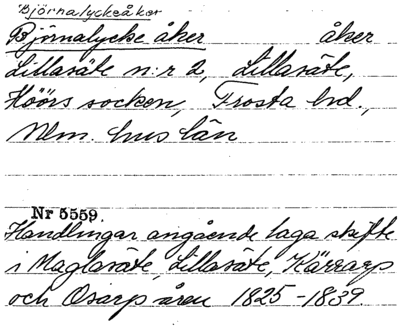 Björnalyckeåker
Björnalycke åker åker
Lillasäte n:r 2, Lillasäte,
Höörs socken, Frosta hd.,
Mlm. hus län
Nr 5559.
Handlingar angående laga skifte
i Maglasäte, Lillasäte, Kärrarp
och Osarp åren 1825-1839.